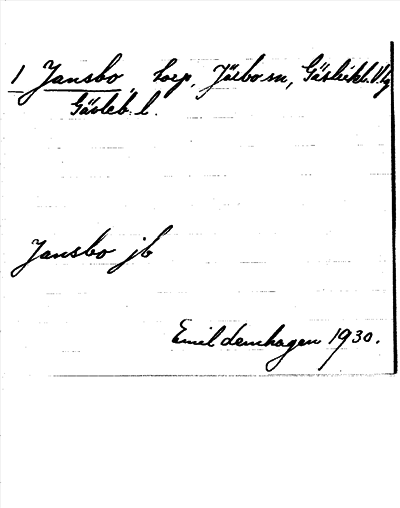 1 Jansbo, torp, Järbo sn, Gästrikl. V. tg
Gävleb. l.
Jansbo jb
Emil Lernhagen 1930.